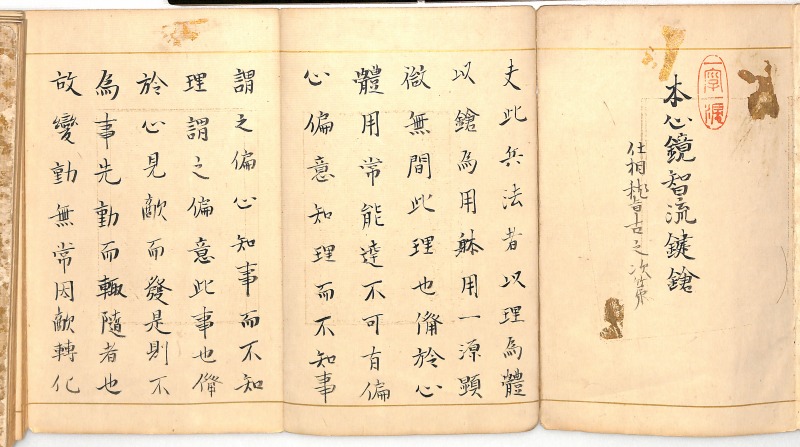 本心鏡智流鍵鎗
仕相稽古之次第
夫此兵法者以理為體
以鎗為用躰用一源顕
微無間此理也備於心
體用常能達不可有偏
心偏意知理而不知事
謂之偏心知事而不知
理謂之偏意此事也備
於心見敵而發是則不
為事先動而輙隨者也
故變動無常因敵轉化